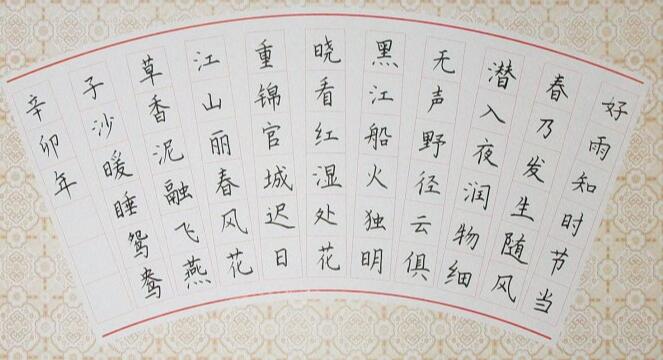 好雨知时节当
春乃发生随风
潜入夜润物细
无声野径云俱
黑江船火独明
晓看红湿处花
重锦官城迟日
江山丽春风花
草香泥融飞燕
子沙暖睡鸳鸯
辛卯年